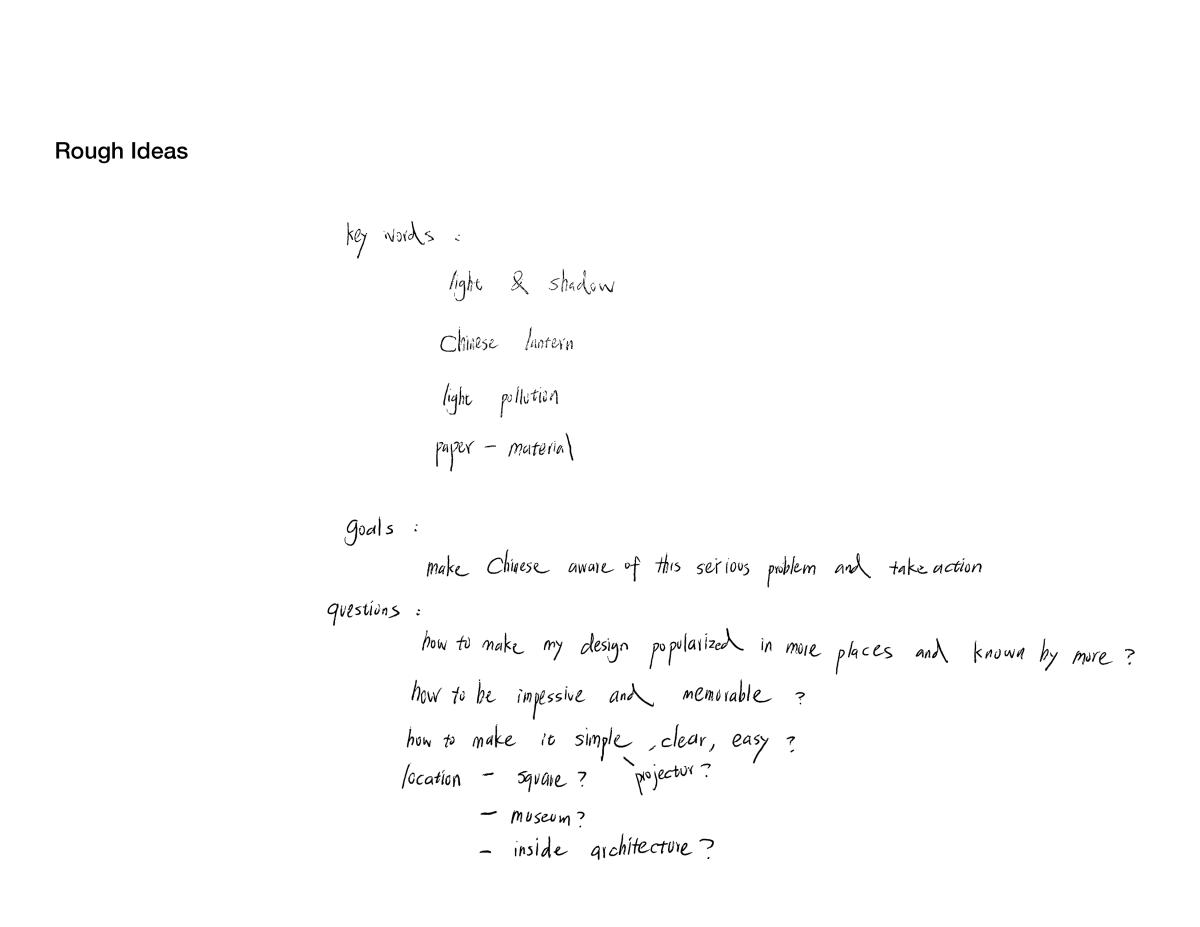 Rough Ideas
key words :
light & shadow
Chinese lantern
light pollution
paper - material
goals :
make Chinese aware of this serious problem and take action
questions :
how to make my design popularized in more places and known by more ?
how to be impessive and memorable ?
how to make it simple , clear, easy ?
projector ?
location - square ?
- museum ?
- inside architecture ?